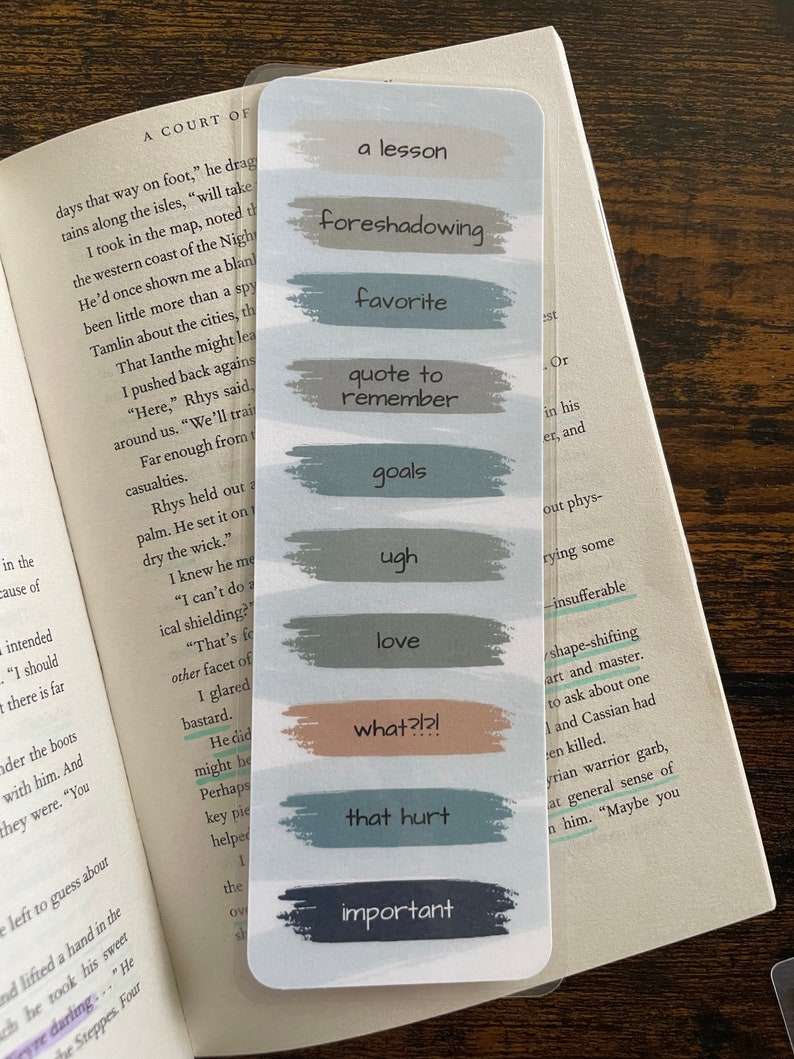 A COURT OF
days that way on foot,” he drag
tains along the isles, “will take
I took in the map, noted th
the western coast of the Nigh
He’d once shown me a blan
been little more than a spy
Tamlin about the cities, th
That Ianthe might lea
I pushed back agains
“Here,” Rhys said,
around us. “We’ll trai
Far enough from t
casualties.
Rhys held out a
palm. He set it on t
dry the wick.”
I knew he me
“I can’t do a
ical shielding?”
“That’s fo
other facet of
I glared
bastard.
He did
might be
Perhaps
key pie
helped
I
the
ov
sh
a lesson
foreshadowing
favorite
quote to
remember
goals
ugh
love
what?!?!
that hurt
important
est
. Or
in his
er, and
out phys-
rying some
—insufferable
shape-shifting
art and master.
to ask about one
l and Cassian had
een killed.
yrian warrior garb,
at general sense of
n him. “Maybe you
in the
cause of
intended
. “I should
t there is far
nder the boots
with him. And
they were. “You
e left to guess about
nd lifted a hand in the
ch he took his sweet
darling . . .” He
he Steppes. Four